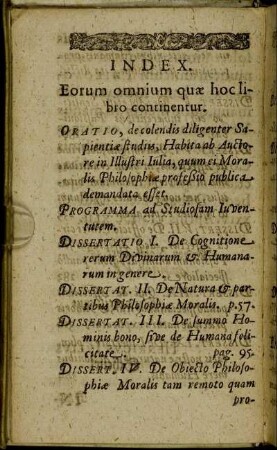 INDEX.
Eorum omnium quæ hoc li-
bro continentur.
ORATIO, de colendis diligenter Sa-
pientiæ studiis, Habita ab Aucto-
re in Illustri Iulia, quum ei Mora-
lis Philosophiæ professio publica
demandata esset.
PROGRAMMA ad Studiosam Iuven-
tutem.
DISSERTATIO I. De Cognitione
rerum Divinarum & Humana-
rum in genere.
DISSERTAT. II. De Natura & par-
tibus Philosophiæ Moralis. p.57.
DISSERTAT. III. De summo Ho-
minis bono, sive de Humana feli-
citate. pag. 95.
DISSERT. IV. De Obiecto Philoso-
phiæ Moralis tam remoto quam
pro-